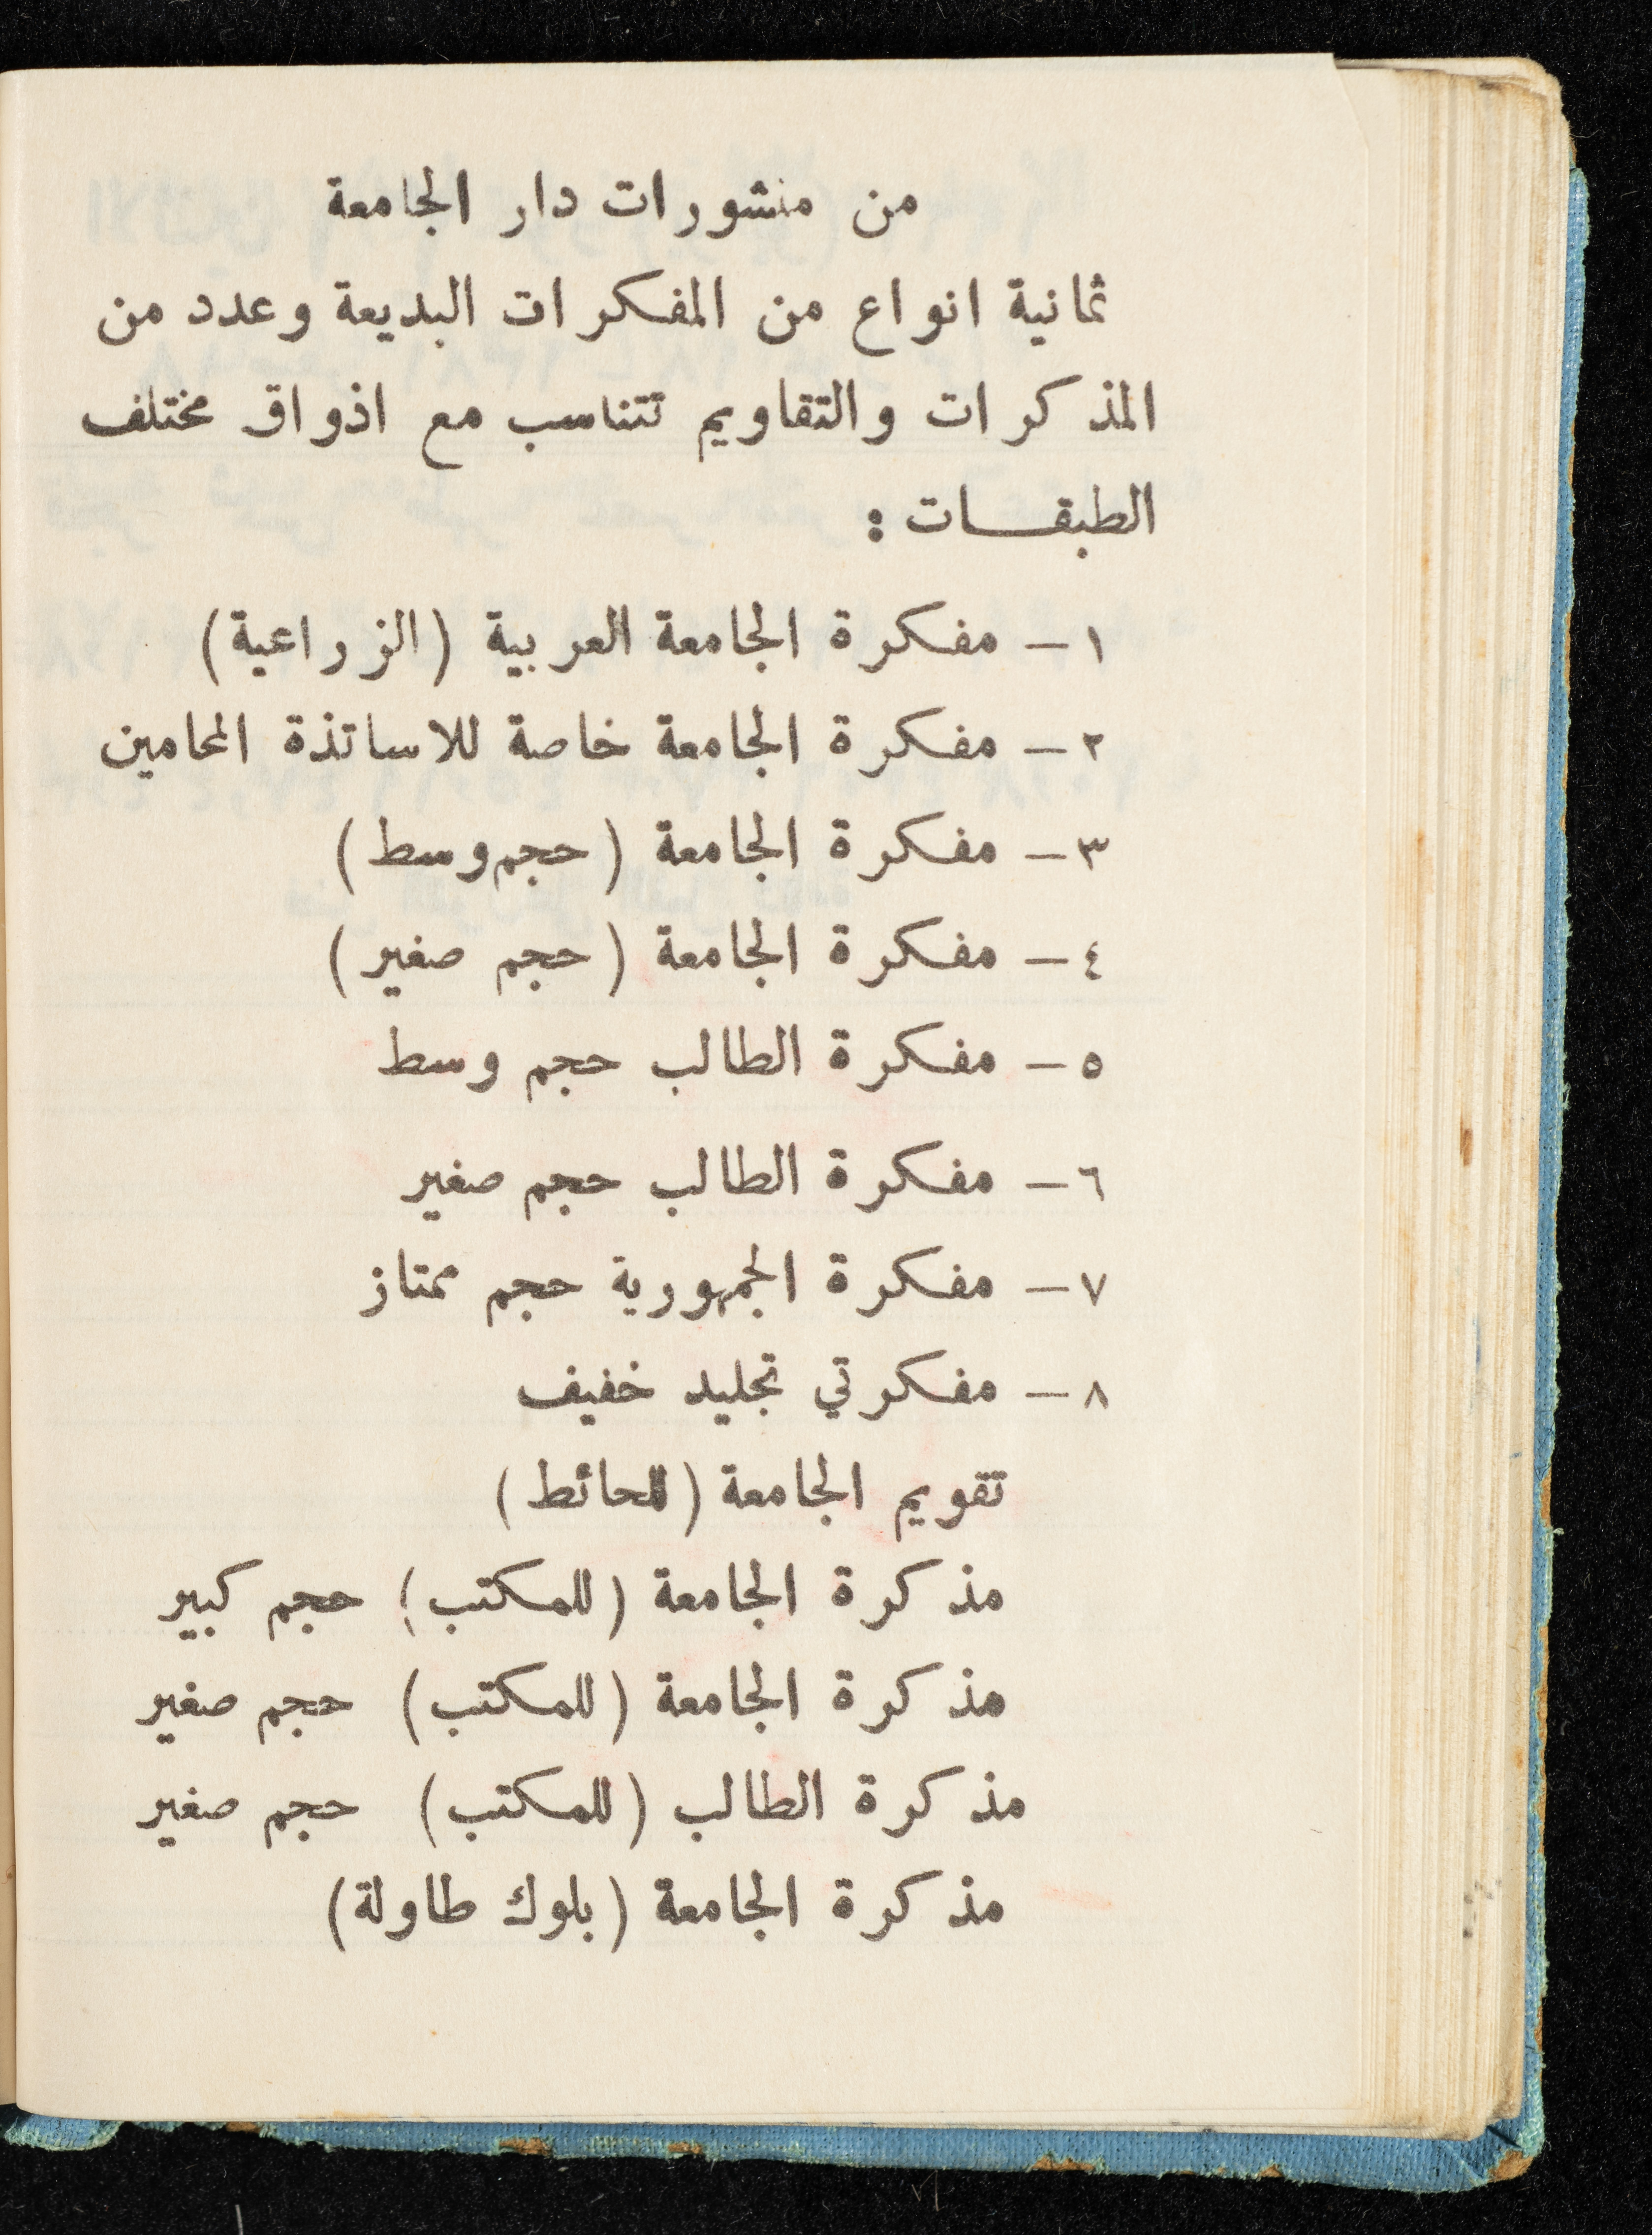 من منشورات دار الجامعة
ثمانية انواع من المفكرات البديعة وعدد من
المذكرات والتقاويم تتناسب مع اذواق مختلف
الطبقـــات :
١ – مفكرة الجامعة العربية (الزراعية)
٢ – مفكرة الجامعة خاصة للاساتذة المحامين
٣ – مفكرة الجامعة (حجم وسط)
٤ – مفكرة الجامعة (حجم صغير)
٥ – مفكرة الطالب حجم وسط
٦ – مفكرة الطالب حجم صغير
٧ – مفكرة الجمهورية حجم ممتاز
٨ – مفكرتي تجليد خفيف
تقويم الجامعة (للحائط)
مذكرة الجامعة (للمكتب) حجم كبير
مذكرة الجامعة (للمكتب) حجم صغير
مذكرة الطالب (للمكتب) حجم صغير
مذكرة الجامعة (بلوك طاولة)